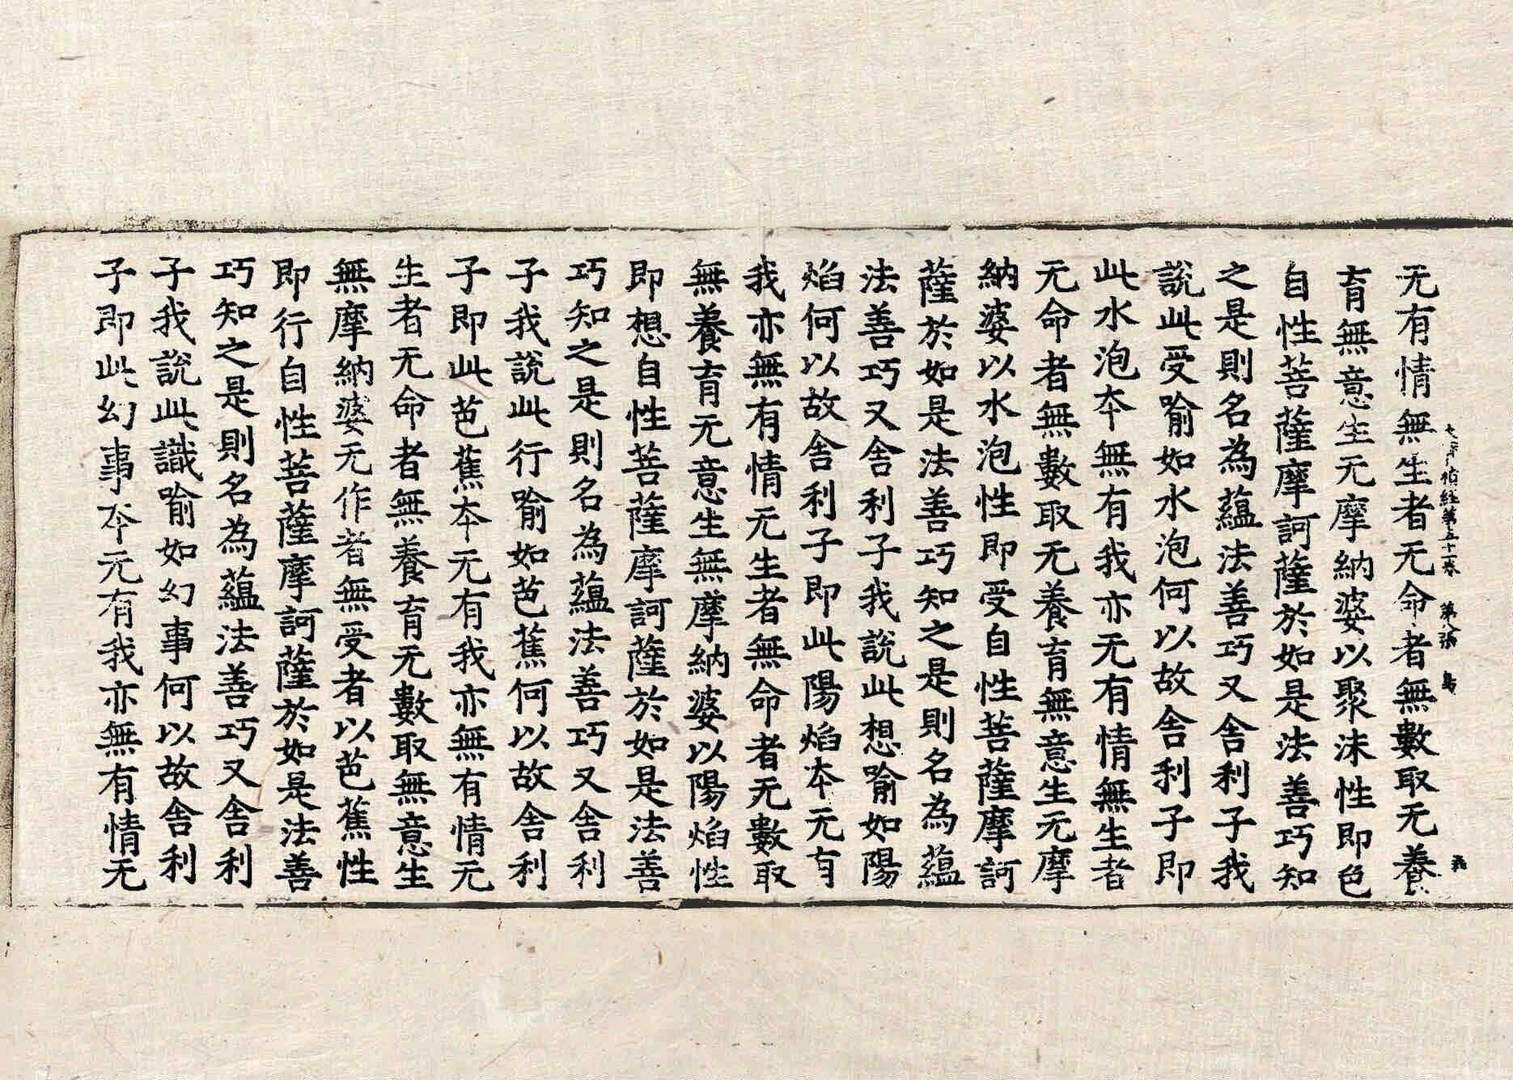 經第五十一 第八張
无有情無生者无命者無數取无養
育無意生无摩納婆以聚沫性即色
自性菩薩摩訶薩於如是法善巧知
之是則名為蘊法善巧又舍利子我
說此受喻如水泡何以故舍利子即
此水泡夲無有我亦无有情無生者
无命者無數取无養育無意生无摩
納婆以水泡性即受自性菩薩摩訶
薩於如是法善巧知之是則名為蘊
法善巧又舍利子我說此想喻如陽
焰何以故舍利子即此陽焰夲无有
我亦無有情无生者無命者无數取
無養育无意生無摩納婆以陽焰性
即想自性菩薩摩訶薩於如是法善
巧知之是則名為蘊法善巧又舍利
子我說此行喻如芭蕉何以故舍利
子即此芭蕉夲无有我亦無有情无
生者无命者無養育无數取無意生
無摩納婆无作者無受者以芭蕉性
即行自性菩薩摩訶薩於如是法善
巧知之是則名為蘊法善巧又舍利
子我說此識喻如幻事何以故舍利
子即此幻事夲无有我亦無有情无